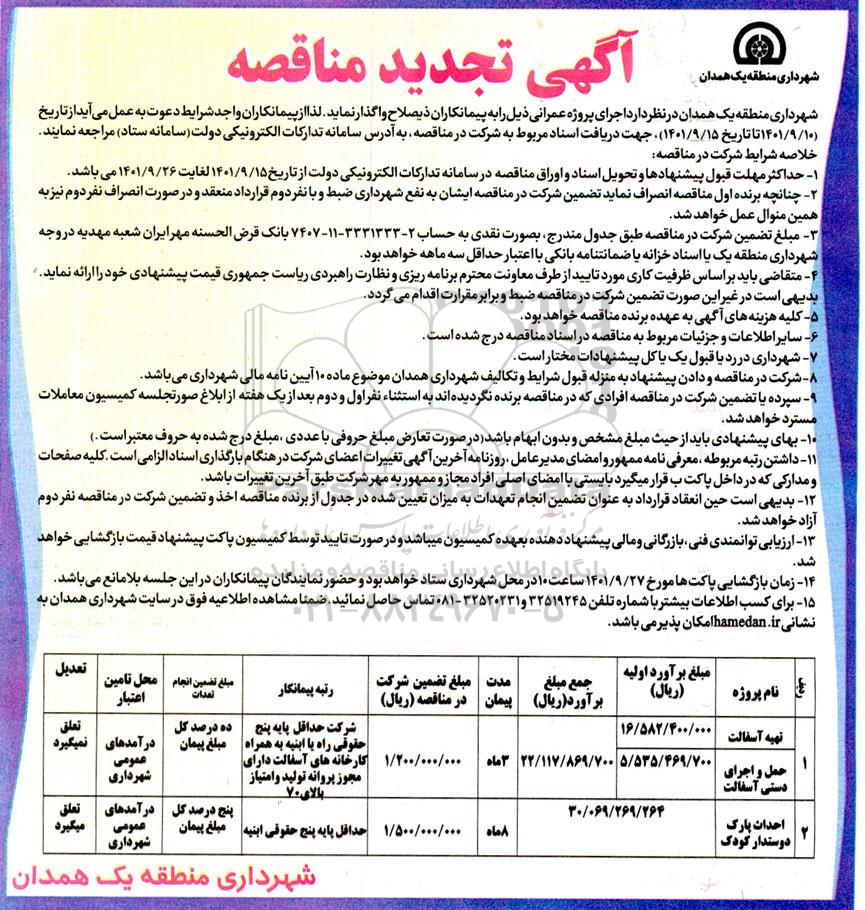 شهرداری منطقه یک همدان
آگهی تجدید مناقصه
شهرداری منطقه یک همدان در نظر دارد اجرای پروژه عمرانی ذیل را به پیمانکاران ذیصلاح واگذار نماید. لذا از پیمانکاران واجد شرایط دعوت به عمل می آید از تاریخ
(۱۴۰۱/۹/۱۰ تا تاریخ ۱۴۰۱/۹/۱۵)، جهت دریافت اسناد مربوط به شرکت در مناقصه، به آدرس سامانه تدارکات الکترونیکی دولت (سامانه ستاد) مراجعه نمایند.
خلاصه شرایط شرکت در مناقصه:
۱- حداکثر مهلت قبول پیشنهادها و تحویل اسناد و اوراق مناقصه در سامانه تدارکات الکترونیکی دولت از تاریخ ۱۴۰۱/۹/۱۵ لغایت ۱۴۰۱/۹/۲۶ می باشد.
۲- چنانچه برنده اول مناقصه انصراف نماید تضمین شرکت در مناقصه ایشان به نفع شهرداری ضبط و با نفر دوم قرارداد منعقد و در صورت انصراف نفر دوم نیز به
همین منوال عمل خواهد شد.
۳- مبلغ تضمین شرکت در مناقصه طبق جدول مندرج، بصورت نقدی به حساب ۲-۳۳۳۱۳۳۳-۱۱-۷۴۰۷ بانک قرض الحسنه مهر ایران شعبه مهدیه در وجه
شهرداری منطقه یک یا اسناد خزانه یا ضمانتنامه بانکی با اعتبار حداقل سه ماهه خواهد بود.
۴- متقاضی باید بر اساس ظرفیت کاری مورد تایید از طرف معاونت محترم برنامه ریزی و نظارت راهبردی ریاست جمهوری قیمت پیشنهادی خود را ارائه نماید.
بدیهی است در غیر این صورت تضمین شرکت در مناقصه ضبط و برابر مقررات اقدام می گردد.
۵- کلیه هزینه های آگهی به عهده برنده مناقصه خواهد بود.
۶- سایر اطلاعات و جزئیات مربوط به مناقصه در اسناد مناقصه درج شده است.
۷- شهرداری در رد یا قبول یک یا کل پیشنهادات مختار است.
۸- شرکت در مناقصه و دادن پیشنهاد به منزله قبول شرایط و تکالیف شهرداری همدان موضوع ماده ۱۰ آیین نامه مالی شهرداری می باشد.
۹- سپرده یا تضمین شرکت در مناقصه افرادی که در مناقصه برنده نگردیده اند به استثناء نفر اول و دوم بعد از یک هفته از ابلاغ صورتجلسه کمیسیون معاملات
مسترد خواهد شد.
۱۰- بهای پیشنهادی باید از حیث مبلغ مشخص و بدون ابهام باشد (در صورت تعارض مبلغ حروفی با عددی، مبلغ درج شده به حروف معتبر است.)
۱۱- داشتن رتبه مربوطه، معرفی نامه ممهور و امضای مدیر عامل، روزنامه آخرین آگهی تغییرات اعضای شرکت در هنگام بارگذاری اسناد الزامی است. کلیه صفحات
و مدارکی که در داخل پاکت ب قرار میگیرد بایستی با امضای اصلی افراد مجاز و ممهور به مهر شرکت طبق آخرین تغییرات باشد.
۱۲- بدیهی است حین انعقاد قرارداد به عنوان تضمین انجام تعهدات به میزان تعیین شده در جدول از برنده مناقصه اخذ و تضمین شرکت در مناقصه نفر دوم
آزاد خواهد شد.
۱۳- ارزیابی توانمندی فنی، بازرگانی و مالی پیشنهاد دهنده بعهده کمیسیون میباشد و در صورت تایید توسط کمیسیون پاکت پیشنهاد قیمت بازگشایی خواهد
شد.
۱۴- زمان بازگشایی پاکت ها مورخ ۱۴۰۱/۹/۲۷ ساعت ۱۰ در محل شهرداری ستاد خواهد بود و حضور نمایندگان پیمانکاران در این جلسه بلامانع می باشد.
۱۵- برای کسب اطلاعات بیشتر با شماره تلفن ۳۲۵۱۹۲۴۵ و ۳۲۵۲۰۲۳۱-۰۸۱ تماس حاصل نمائید. ضمنا مشاهده اطلاعیه فوق در سایت شهرداری همدان به
نشانی hamedan.ir امکان پذیر می باشد.
پایگاه اطلاع رسانی مناقصه و مزایده
۰۲۱-۸۸۳۴۹۶۷۰-۵
ردیف | نام پروژه | مبلغ برآورد اولیه (ریال) | جمع مبلغ برآورد (ریال) | مدت پیمان | مبلغ تضمین شرکت در مناقصه (ریال) | رتبه پیمانکار | مبلغ تضمین انجام تعدات | محل تامین اعتبار | تعدیل
۱ | تهیه آسفالت | ۱۶/۵۸۲/۴۰۰/۰۰۰ | ۲۲/۱۱۷/۸۶۹/۷۰۰ | ۳ماه | ۱/۲۰۰/۰۰۰/۰۰۰ | شرکت حداقل پایه پنج حقوقی راه یا ابنیه به همراه کارخانه های آسفالت دارای مجوز پروانه تولید و امتیاز بالای ۷۰ | ده درصد کل مبلغ پیمان | درآمدهای عمومی شهرداری | تعلق نمیگیرد
حمل و اجرای دستی آسفالت | ۵/۵۳۵/۴۶۹/۷۰۰
۲ | احداث پارک دوستدار کودک | ۳۰/۰۶۹/۲۶۹/۲۶۴ | ۸ماه | ۱/۵۰۰/۰۰۰/۰۰۰ | حداقل پایه پنج حقوقی ابنیه | پنج درصد کل مبلغ پیمان | درآمدهای عمومی شهرداری | تعلق میگیرد
شهرداری منطقه یک همدان